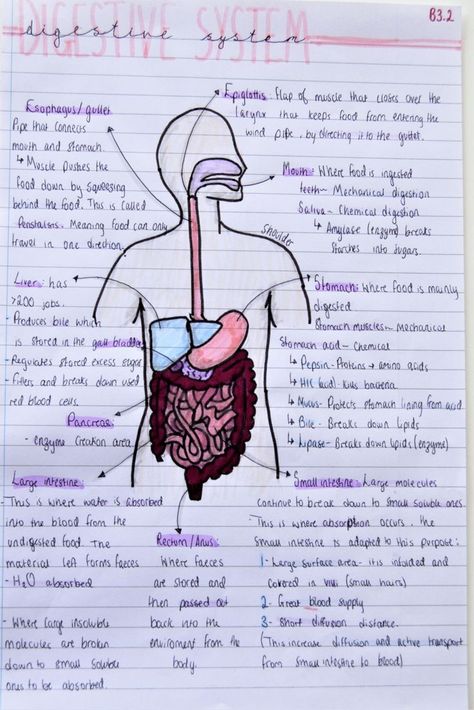 B3.2
DIGESTIVE SYSTEM
digestive system
Esophagus/gullet
Pipe that connects
mouth and stomach.
↳ Muscle pushes the
food down by squeezing
behind the food. This is called
Peristalsis. Meaning food can only
travel in one direction.
Epiglottis: Flap of muscle that closes over the
larynx that keeps food from entering the
wind pipe, by directing it to the gullet.
Mouth: Where food is ingested
teeth- Mechanical digestion
Saliva- Chemical digestion
↳ Amylase (enzyme) breaks
starches into sugars.
Shoulder
Liver: has
>200 jobs.
- Produces bile which
is stored in the gall bladder
- Regulates stored excess sugar
- Filters and breaks down used
red blood cells.
Stomach: Where food is mainly
digested
Stomach muscles- Mechanical
Stomach acid- Chemical
↳ Pepsin- Proteins → amino acids
↳ HCl (acid)- Kills bacteria
↳ Mucus- Protects stomach lining from acid
↳ Bile- Breaks down lipids
↳ Lipase- Breaks down lipids (enzyme)
Pancreas:
- enzyme creation area
Large intestine:
- This is where water is absorbed
into the blood from the
undigested food. The
material left forms faeces
- H2O absorbed
- Where large insoluble
molecules are broken
down to small soluble
ones to be absorbed.
Rectum/Anus:
Where faeces
are stored and
then passed out
back into the
enviroment from the
body.
Small intestine: Large molecules
continue to break down to small soluble ones.
This is where absorption occurs. The
small intestine is adapted to this purpose:
1- Large surface area- it is infolded and
covered in villi (small hairs)
2- Great blood supply
3- Short diffusion distance.
(This increase diffusion and active transport
from small intestine to blood)